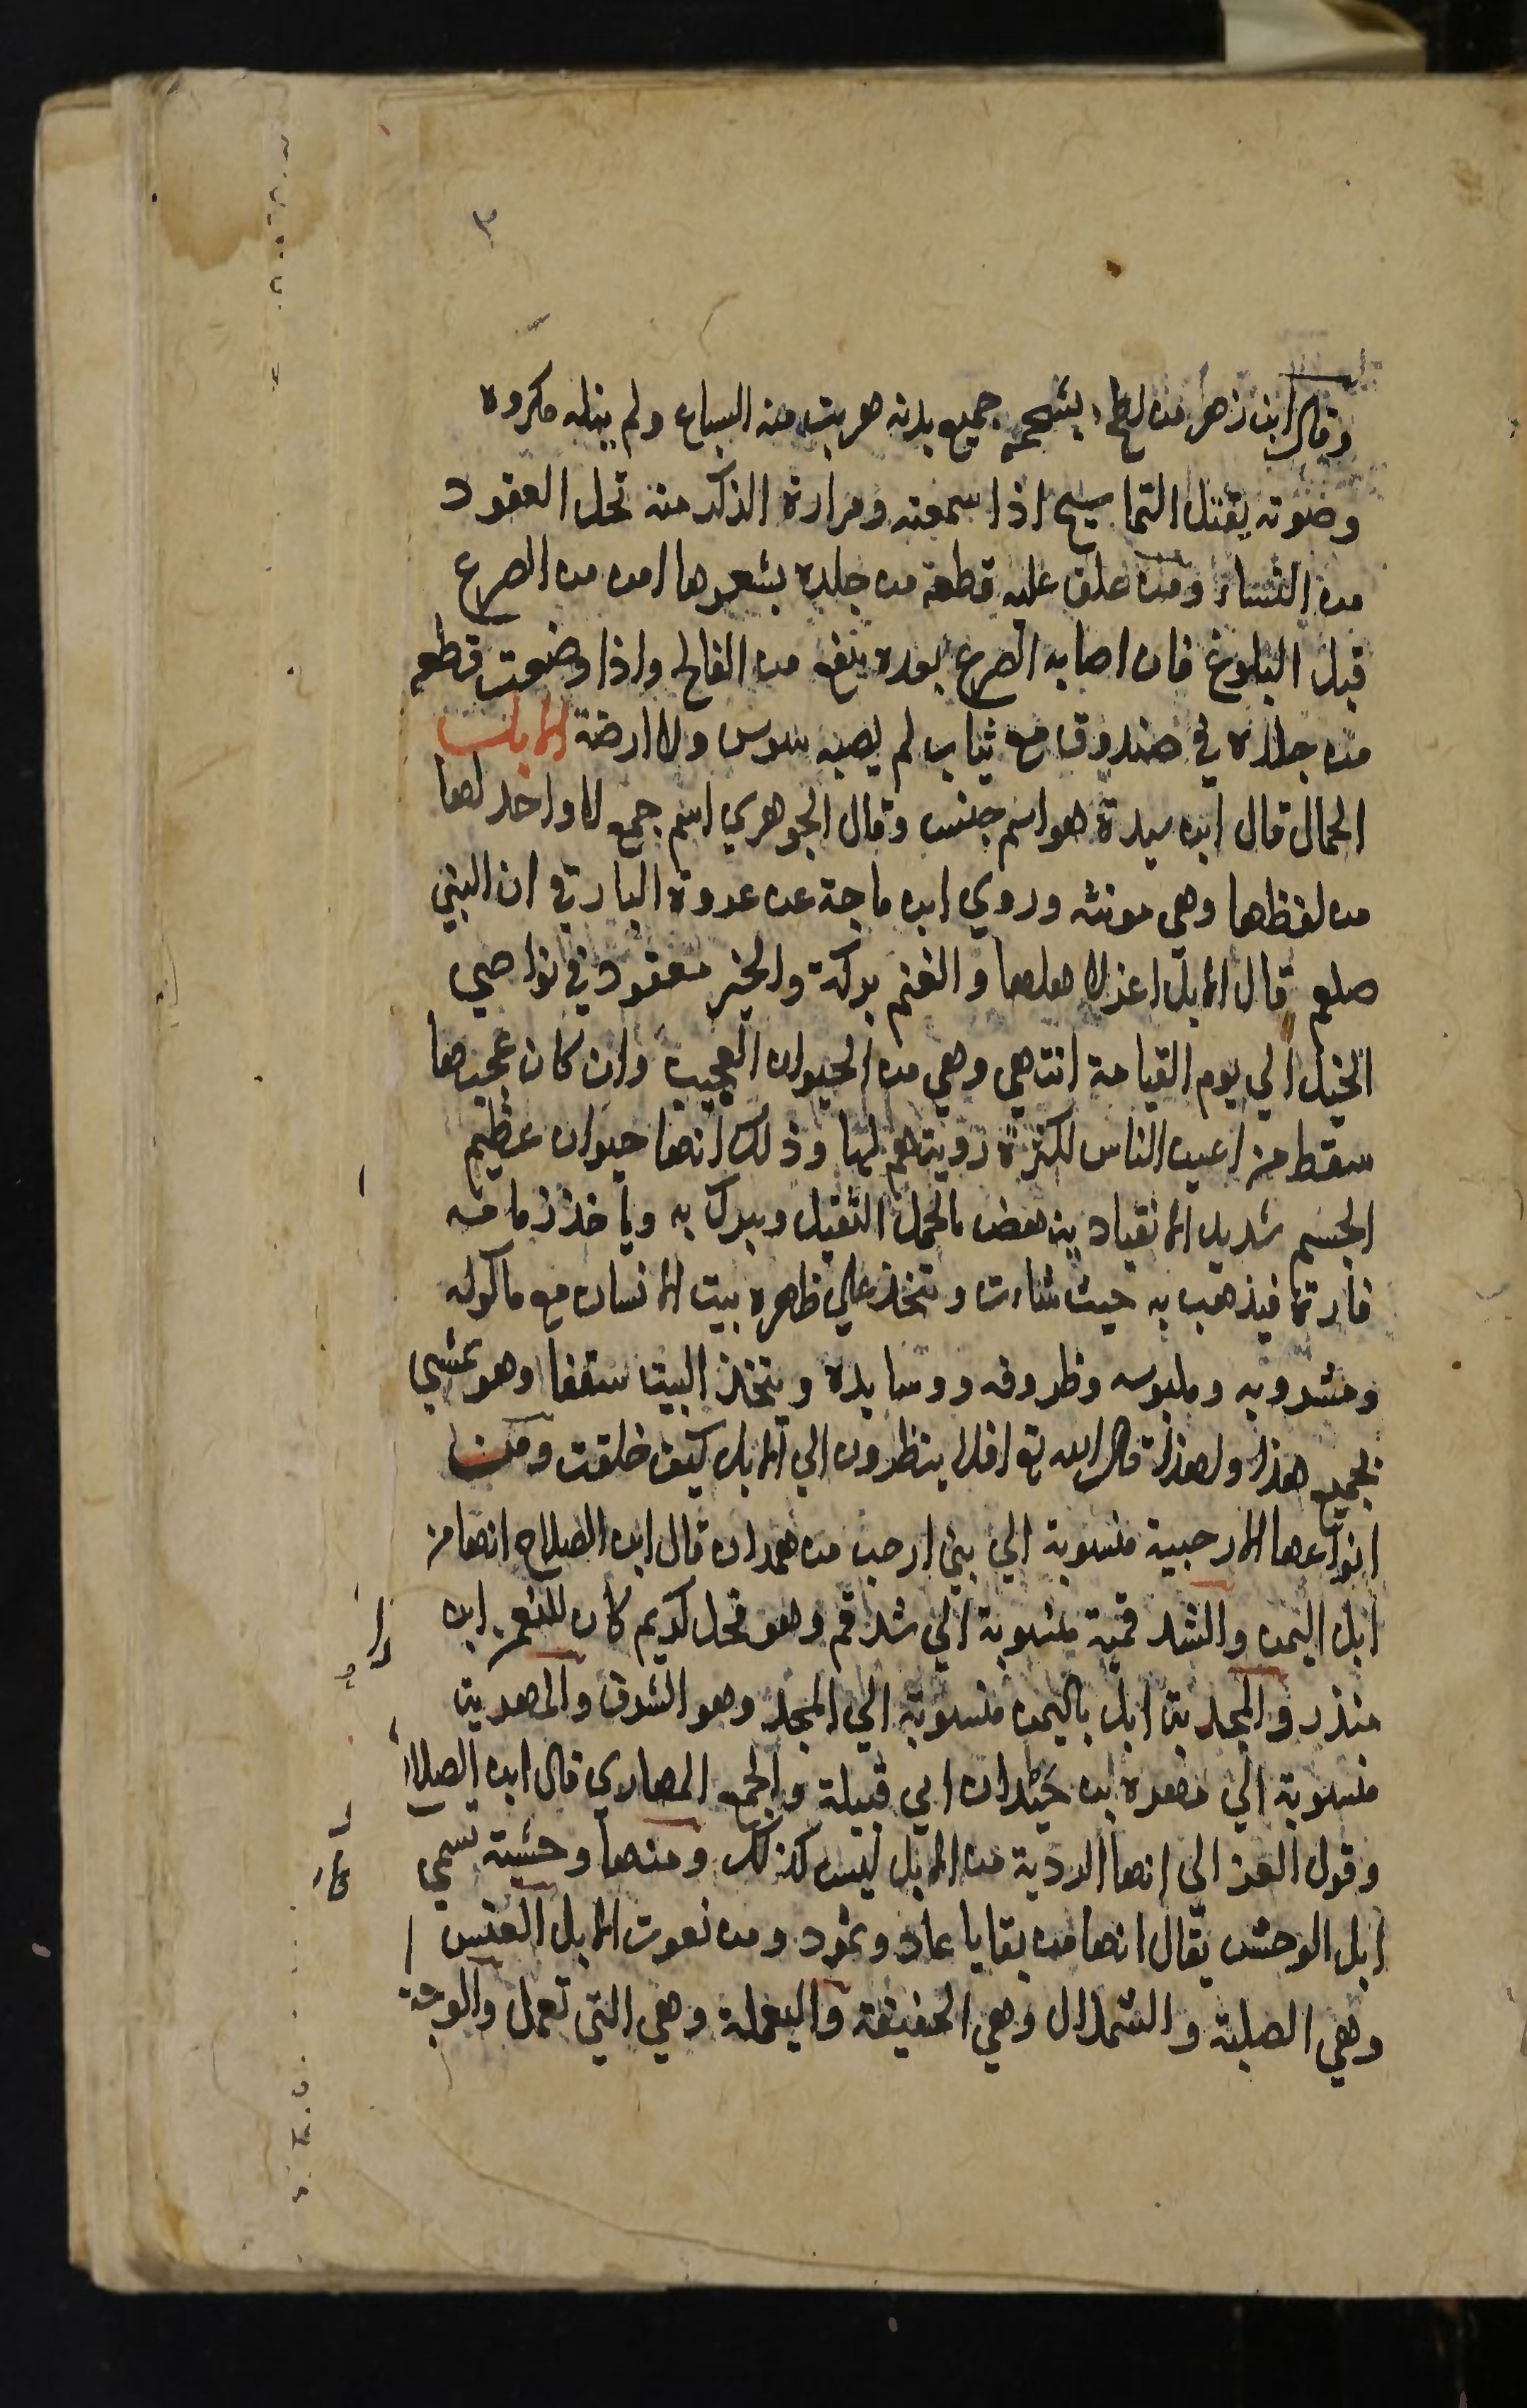 ٣
وقال ابن زهر من لطخ بشحمه جميع بدنه هربت منه السباع ولم ينله مكروه
وصوته يقتل التماسيح اذا سمعته ومرارة الذكر منه تحل العقود
من النساء ومن علق عليه قطعة من جلده بشعرها امن من الصرع
قبل البلوغ فان اصابه الصرع بعده ينفع من الفالج واذا وضعت قطعه
من جلده في صندوق مع ثياب لم يصبه سوس ولا ارضة الابل
الجمال قال ابن سيدة هو اسم جنس وقال الجوهري اسم جمع لا واحد لها
من لفظها وهي مونثه وروي ابن ماجة عن عروة البارقي ان النبي
صلعم قال الابل اعز لاهلها والغنم بركة والخير معقود في نواصي
الخيل الي يوم القيامة انتهي وهي من الحيوان العجيب وان كان عجبها
سقط من اعين الناس لكثرة رويتهم لها وذلك انها حيوان عظيم
الجسم شديد الانقياد ينهض بالحمل الثقيل ويبرك به وياخذ زمامه
فارة فيذهب به حيث شات ويتخذ علي ظهره بيت الانسان مع ماكوله
ومشروبه وملبوسه وظروفه ووسايده ويتخذ البيت سقفا وهو يمشي
بجميع هذا ولهذا قال الله تع افلا ينظرون الي الابل كيف خلقت ومن
انواعها الارحبية منسوبة الي بني ارحب من همدان قال ابن الصلاح انها من
ابل اليمن والشدقمية منسوبة الي شدقم وهو فحل كريم كان للنعمن ابن
منذر والمجدية ابل باليمن منسوبة الي المجد وهو الشرف والمهرية
منسوبة الي مهره ابن حيدان ابي قبيلة والجمع المهاري قال ابن الصلاح
وقول الغزالي انها الردية من الابل ليس كذلك ومنها وحشية تسمي
ابل الوحش يقال انها من بقايا عاد وثمود ومن نعوت الابل العنس
وهي الصلبة والشملال وهي الخفيفة واليعملة وهي التي تعمل والوجنا